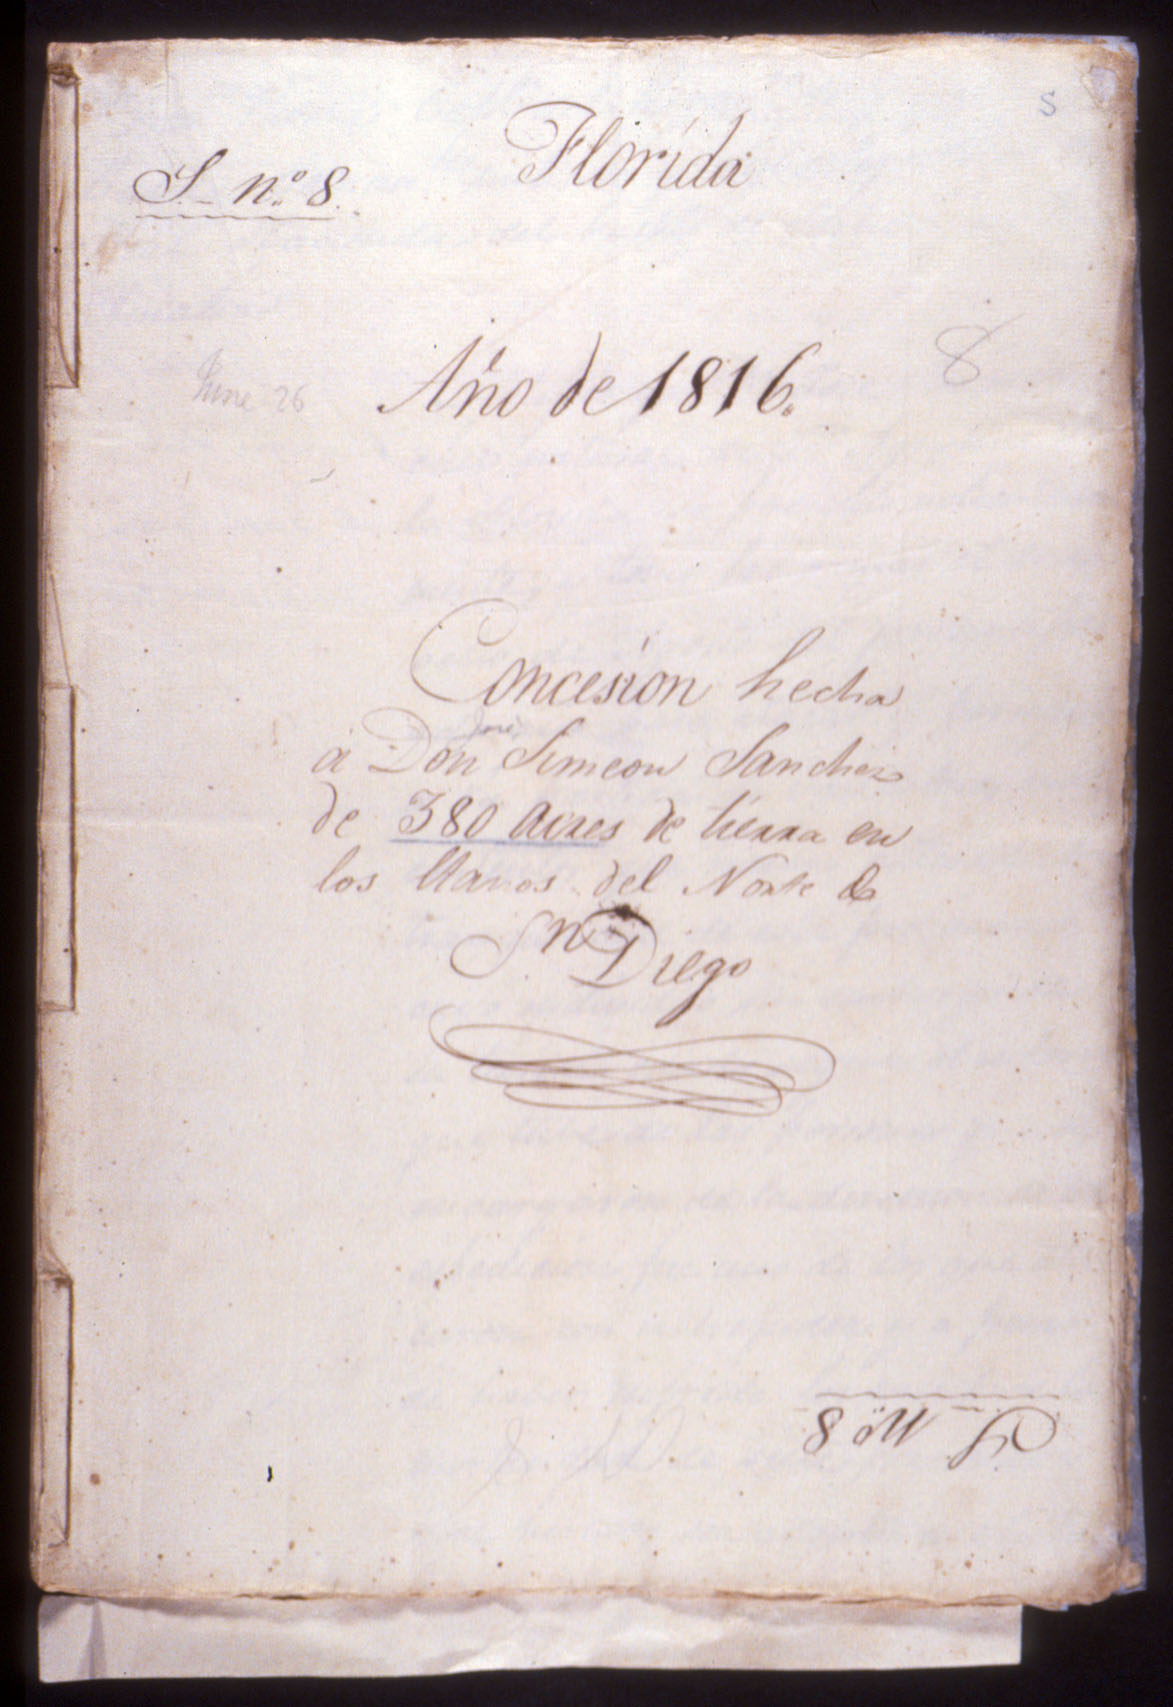 S
Florida
S. nº 8.
8
June 26
Año de 1816.
Concesion hecha
José
á Don Simeon Sanchez
de 380 acres de tierra en
los llanos del Norte de
Sn Diego
S. Nº 8